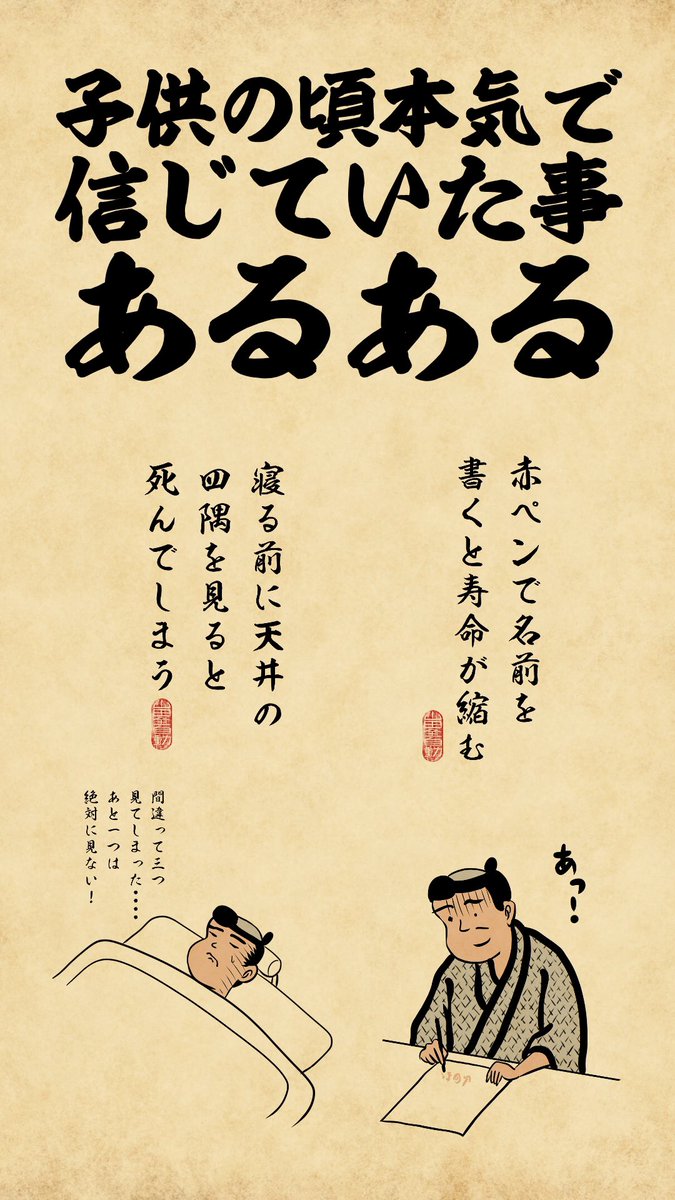 子供の頃本気で
信じていた事
あるある
赤ペンで名前を
書くと寿命が縮む
寝る前に天井の
四隅を見ると
死んでしまう
あっ!
間違って三つ
見てしまった・・・・
あと一つは
絶対に見ない!